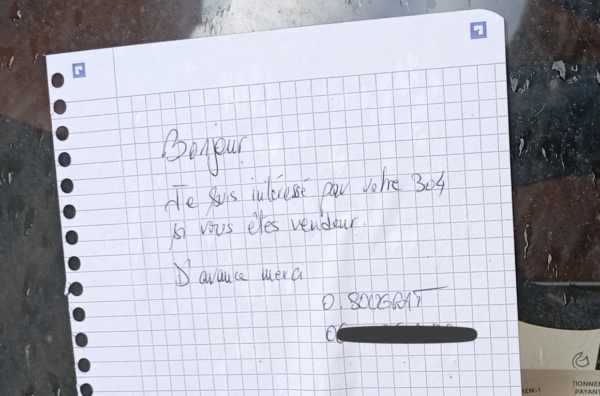 Bonjour
Je suis intéressé par votre 304
si vous êtes vendeur.
D'avance merci
06
IONNEM
PAYANT